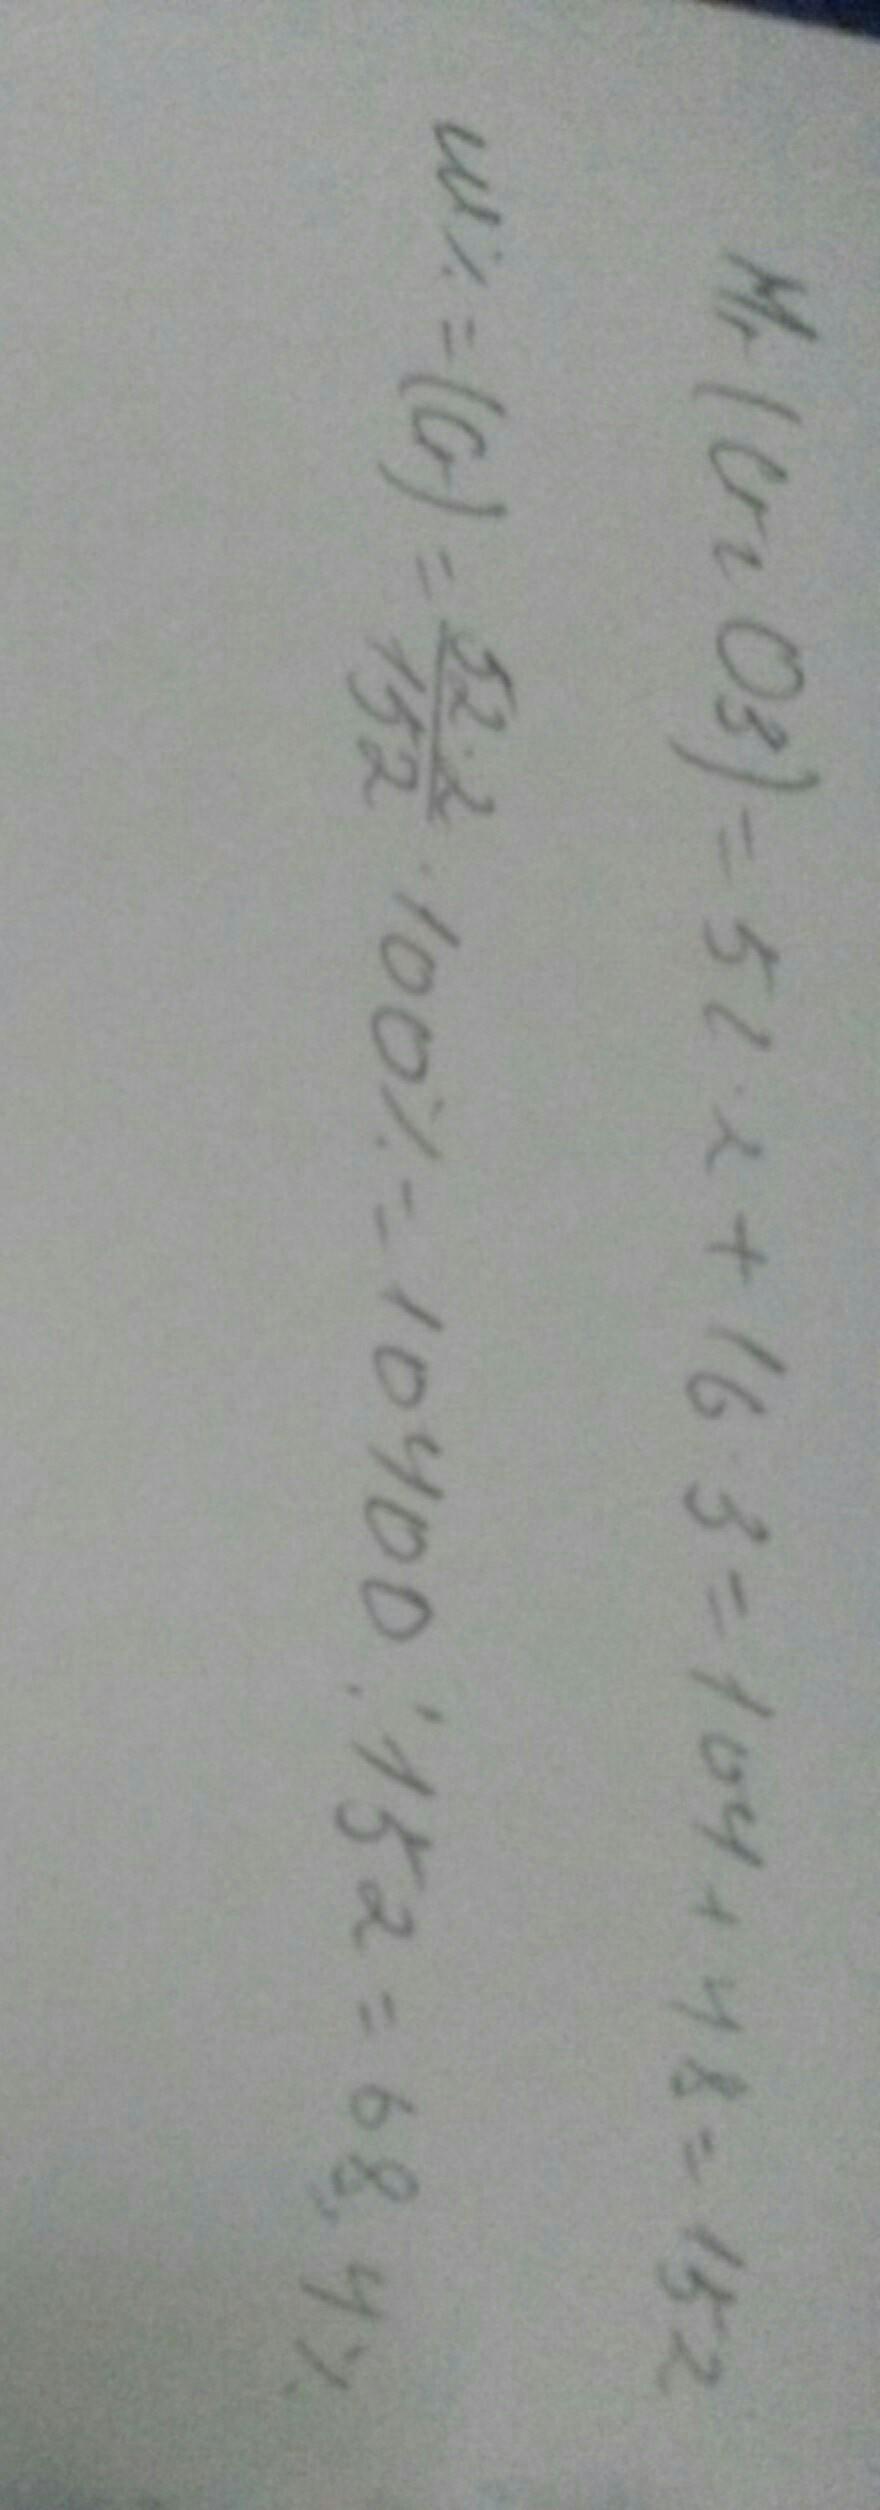 Mr(Cr2O3)=52·2+16·3=104+48=152
w%=(Cr)=52·2/152·100%=10400:152=68,4%